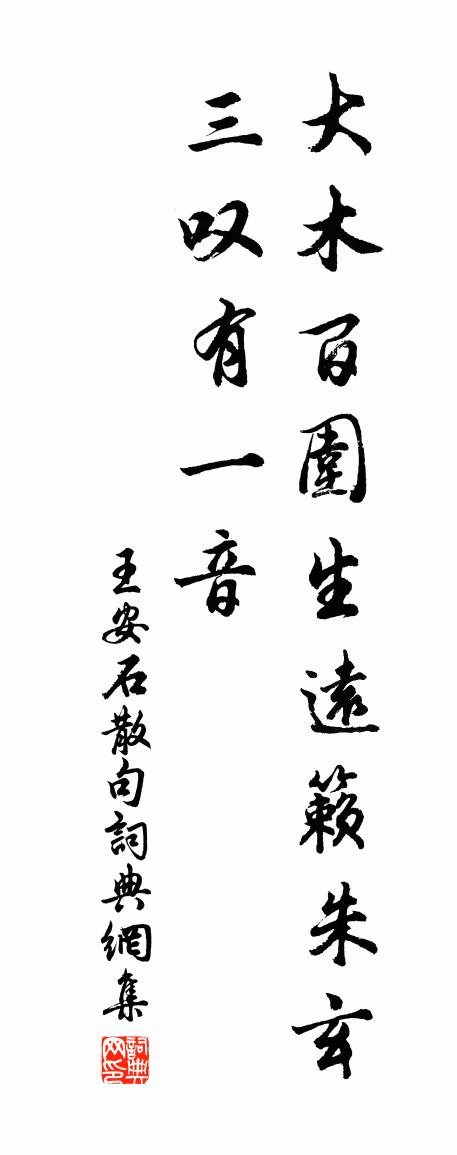 大木百圍生遠籟朱玄
三叹有一音
王安石散句詞典網集
詞典网印